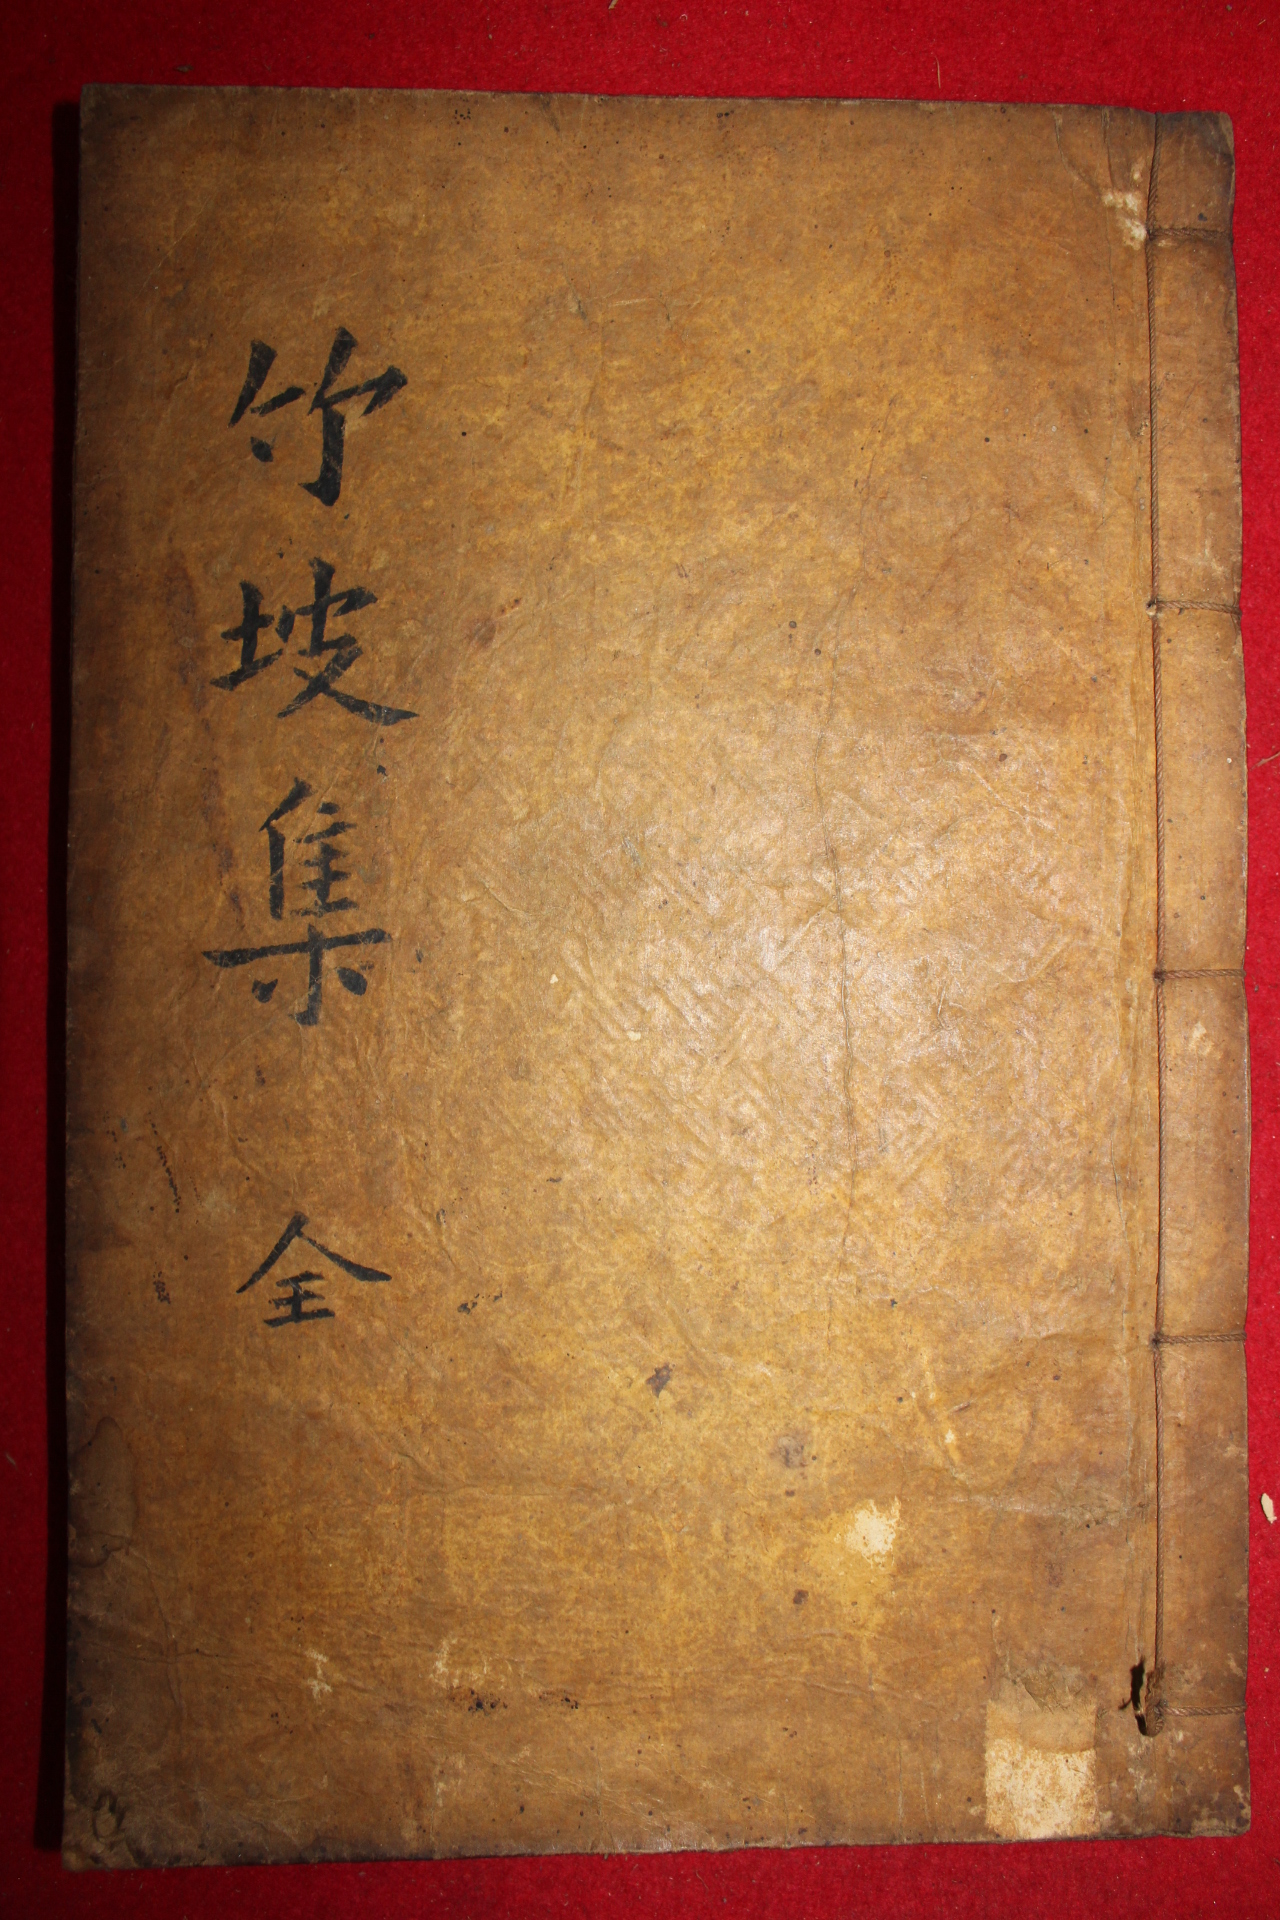 竹坡集 全